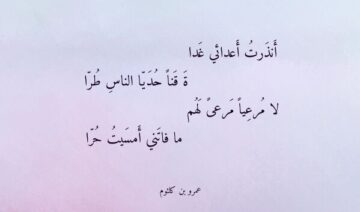 أَنذَرتُ أَعدائي غَدا
ةَ قَناً حُدَيّا الناسِ طُرّا
لا مُرعِياً مَرعىً لَهُم
ما فاتَني أَمسَيتُ حُرّا
عمرو بن كلثوم